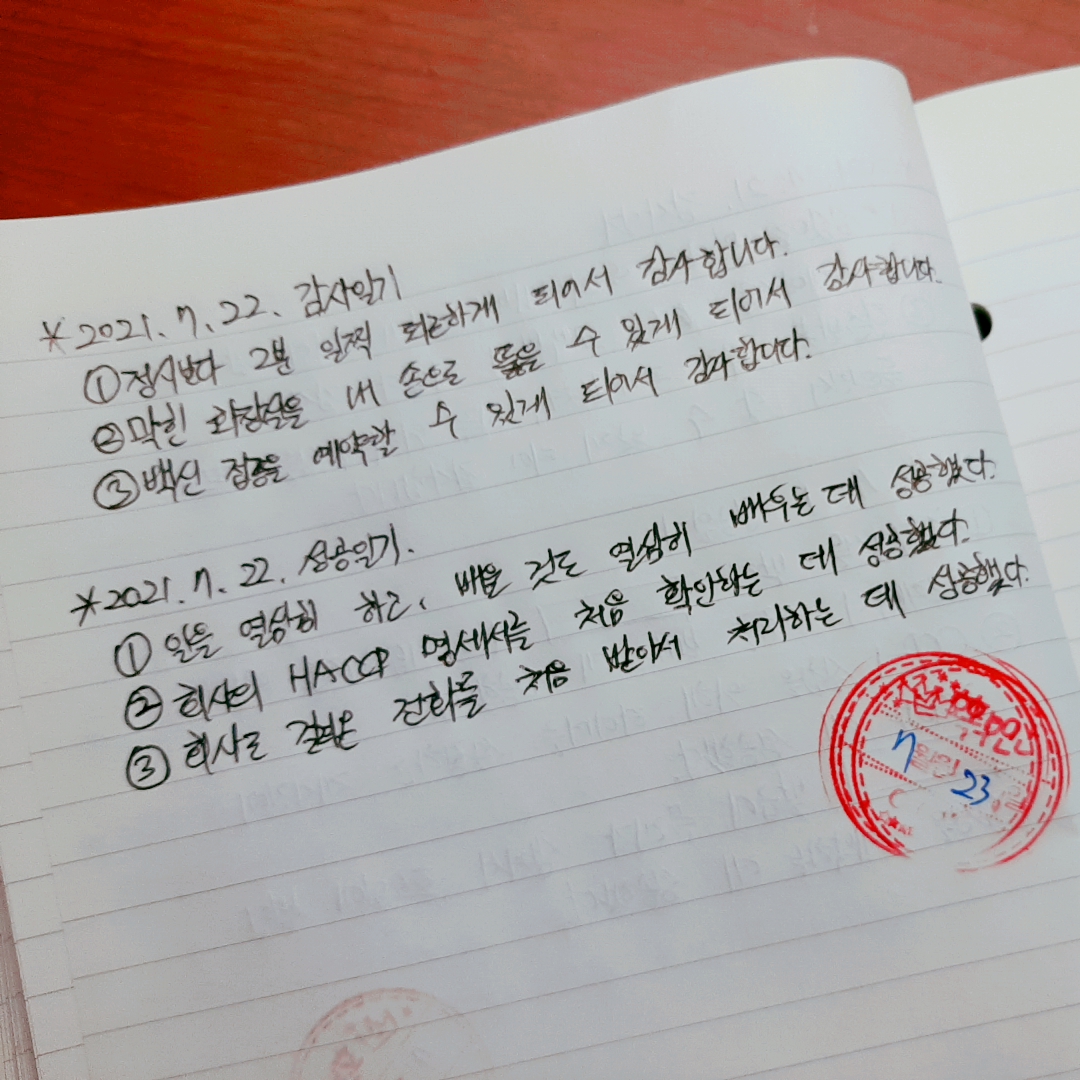 * 2021. 7. 22. 감사일기
① 정시보다 2분 일찍 퇴근하게 되어서 감사합니다.
② 막힌 화장실을 내 손으로 뚫을 수 있게 되어서 감사합니다.
③ 백신 접종을 예약할 수 있게 되어서 감사합니다.
* 2021. 7. 22. 성공일기.
① 일을 열심히 하고, 배울 것도 열심히 배우는 데 성공했다.
② 회사의 HACCP 명세서를 처음 확인하는 데 성공했다.
③ 회사로 걸려온 전화를 처음 받아서 처리하는 데 성공했다.
7월
23